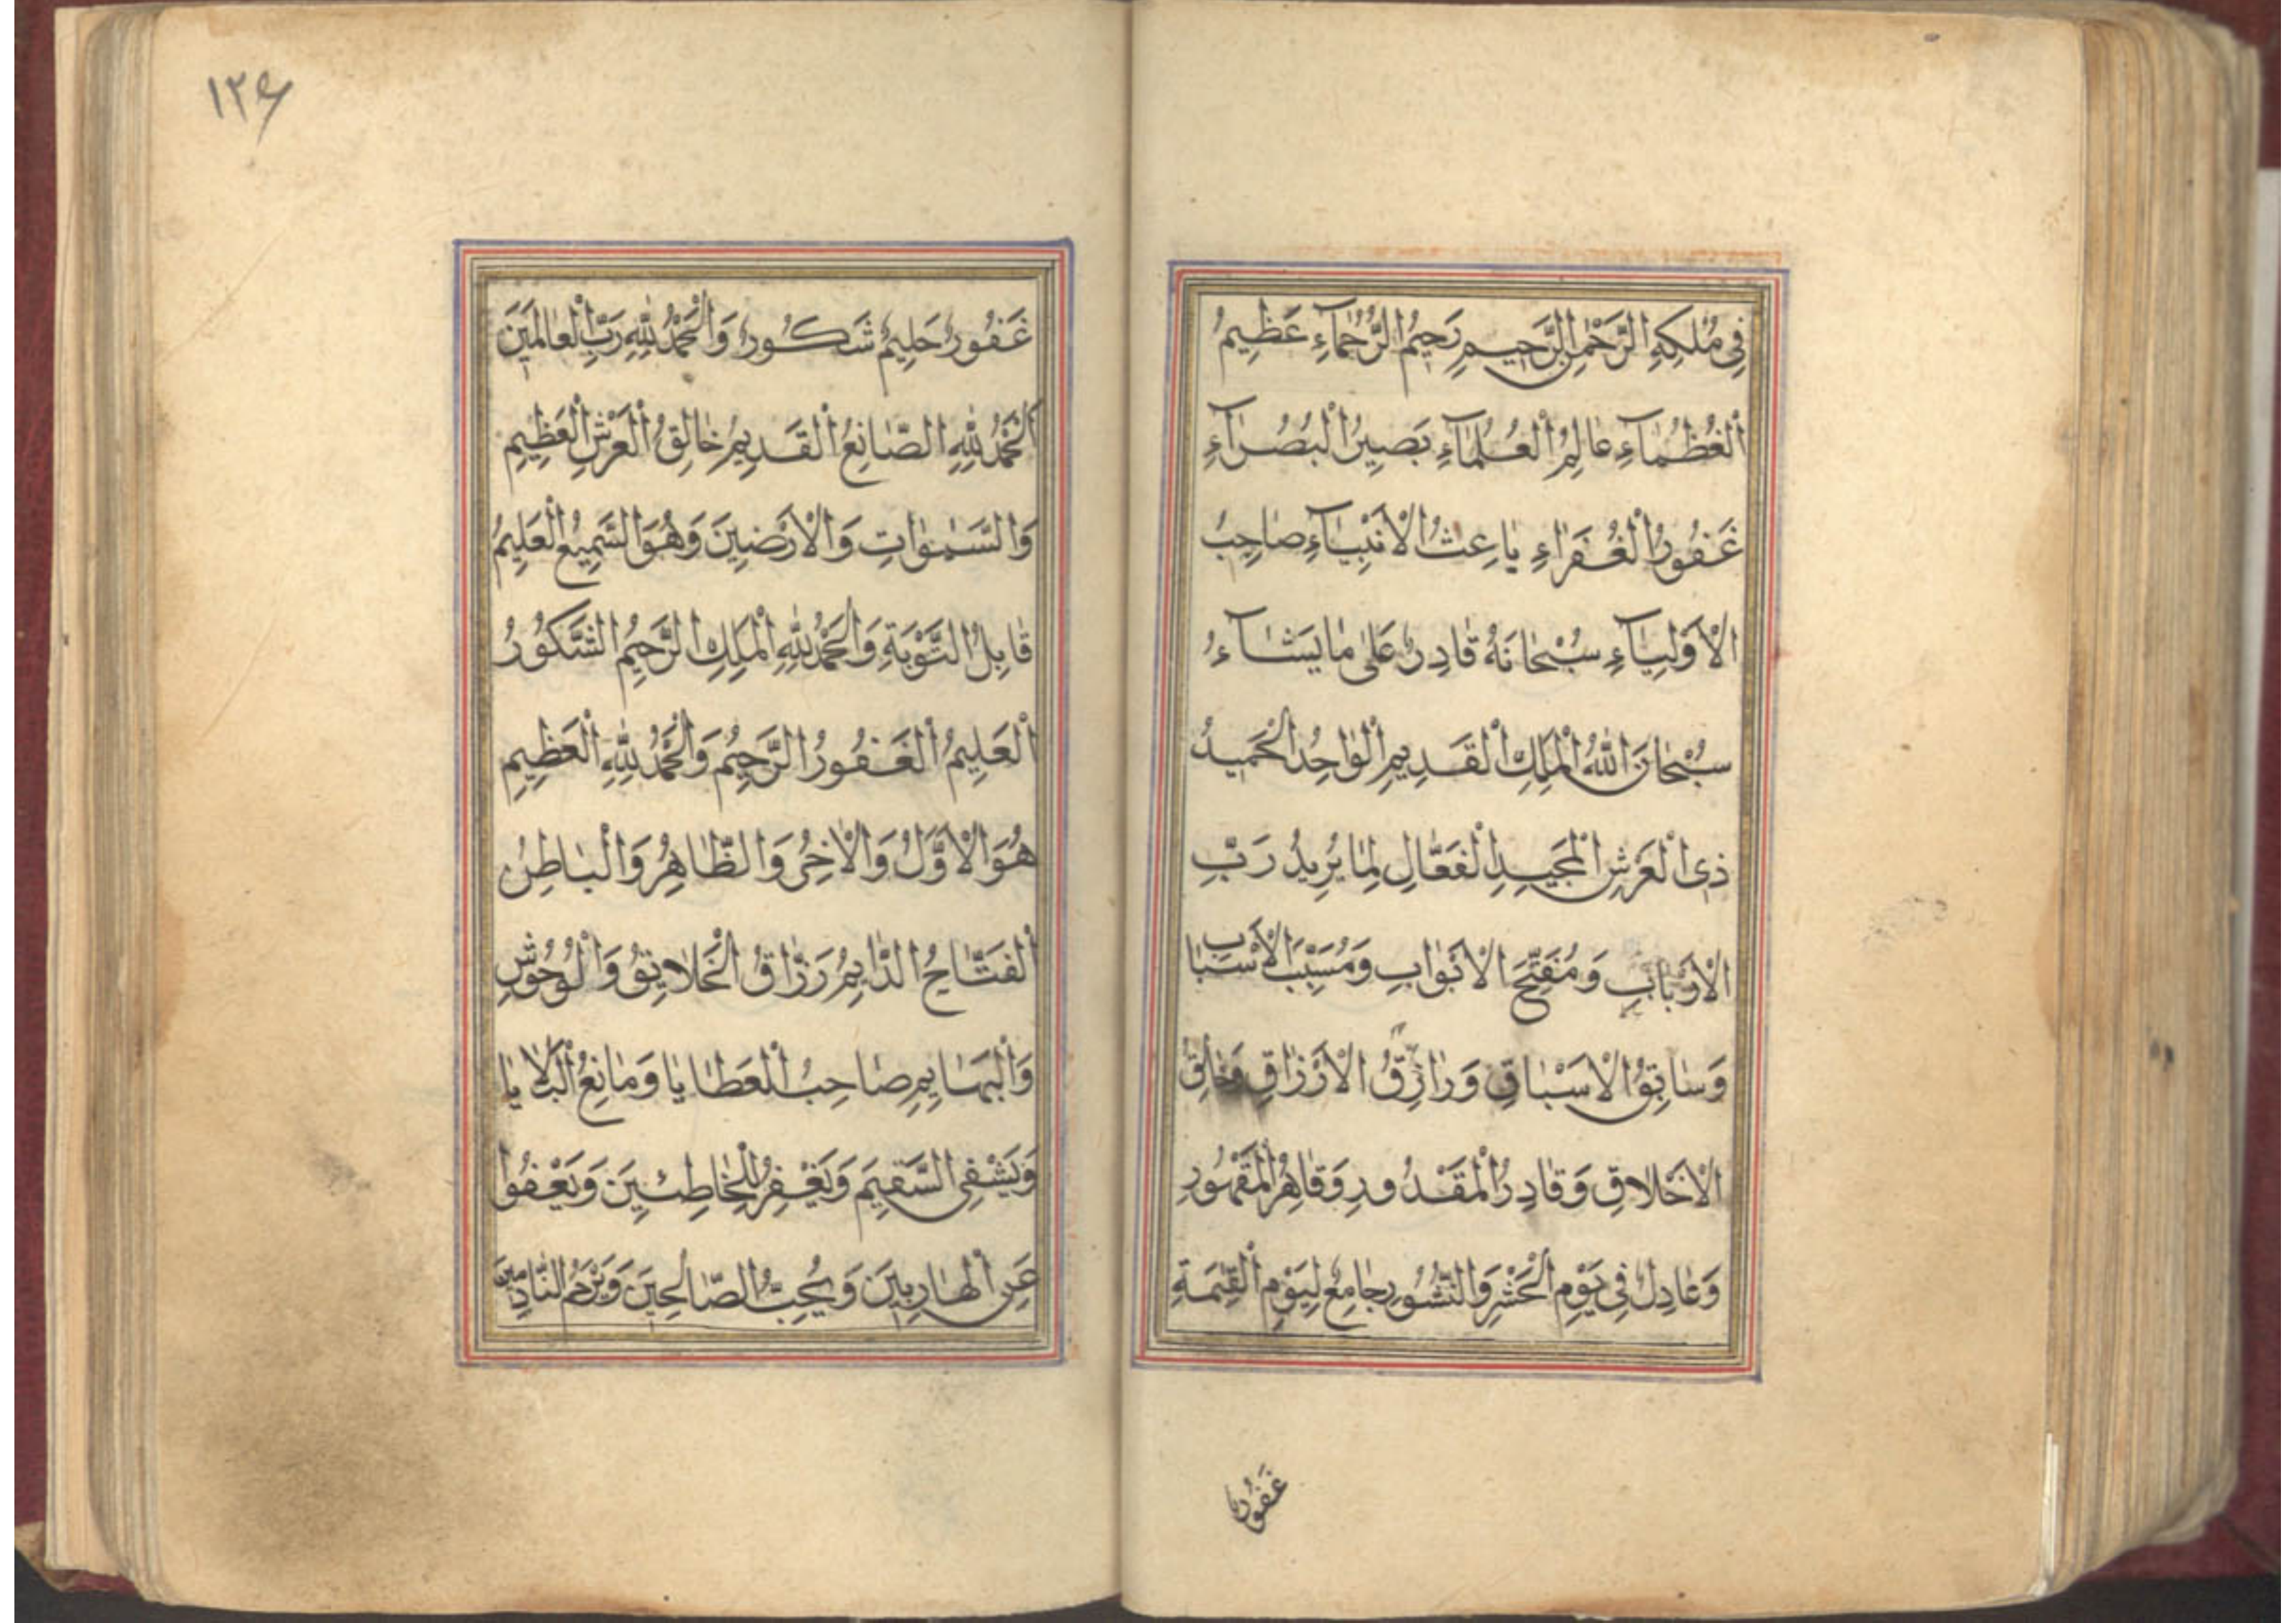 فِي مُلْكِهِ الرَّحْمٰنِ الرَّحِيمِ رَحِيمُ الرُّحَمَآءِ عَظِيمُ
الْعُظَمَآءِ عَالِمُ الْعُلَمَآءِ بَصِيرُ الْبُصَرَآءِ
غَفُورُ الْغُفَرَاءِ بَاعِثُ الْاَنْبِيَآءِ صَاحِبُ
الْاَوْلِيَآءِ سُبْحَانَهُ قَادِرٌ عَلٰى مَا يَشَآءُ
سُبْحَانَ اللّٰهُ الْمَلِكِ الْقَدِيمِ الْوَاحِدُ الْحَمِيدُ
ذِى الْعَرْشِ الْمَجِيدِ الْفَعَّالِ لِمَا يُرِيدُ رَبِّ
الْاَرْبَابِ وَمُفَتِّحَ الْاَبْوَابِ وَمُسَبِّبَ الْاَسْبَابِ
وَسَابِقُ الْاَسْبَاقِ وَرَازِقُ الْاَرْزَاقِ وَخَالِقُ
الْاَخْلَاقِ وَقَادِرُ الْمَقْدُورِ وَقَاهِرُ الْمَقْهُورِ
وَعَادِلٌ فِي يَوْمِ الْحَشْرِ وَالنُّشُورِ جَامِعٌ لِيَوْمِ الْقِيٰمَةِ
غَفُورٌ
١٢٤
غَفُورٌ حَلِيمٌ شَكُورٌ وَالْحَمْدُ لِلّٰهِ رَبِّ الْعَالَمِينَ
اَلْحَمْدُ لِلّٰهِ الصَّانِعُ الْقَدِيمُ خَالِقُ الْعَرْشِ الْعَظِيمِ
وَالسَّمٰوَاتِ وَالْاَرْضِينَ وَهُوَ السَّمِيعُ الْعَلِيمُ
قَابِلُ التَّوْبَةِ وَالْحَمْدُ لِلّٰهِ الْمَلِكِ الرَّحِيمُ الشَّكُورُ
الْعَلِيمُ الْغَفُورُ الرَّحِيمُ وَالْحَمْدُ لِلّٰهِ الْعَظِيمِ
هُوَ الْاَوَّلُ وَالْاٰخِرُ وَالظَّاهِرُ وَالْبَاطِنُ
الْفَتَّاحُ الدَّايِمُ رَزَّاقُ الْخَلَايِقُ وَالْوُحُوشِ
وَالْبَهَايِمِ صَاحِبُ الْعَطَايَا وَمَانِعُ الْبَلَايَا
وَيَشْفِى السَّقِيمَ وَيَغْفِرُ لِلْخَاطِئِينَ وَيَعْفُوا
عَنِ الْهَارِبِينَ وَيُحِبُّ الصَّالِحِينَ وَيَرْحَمُ النَّادِمِينَ